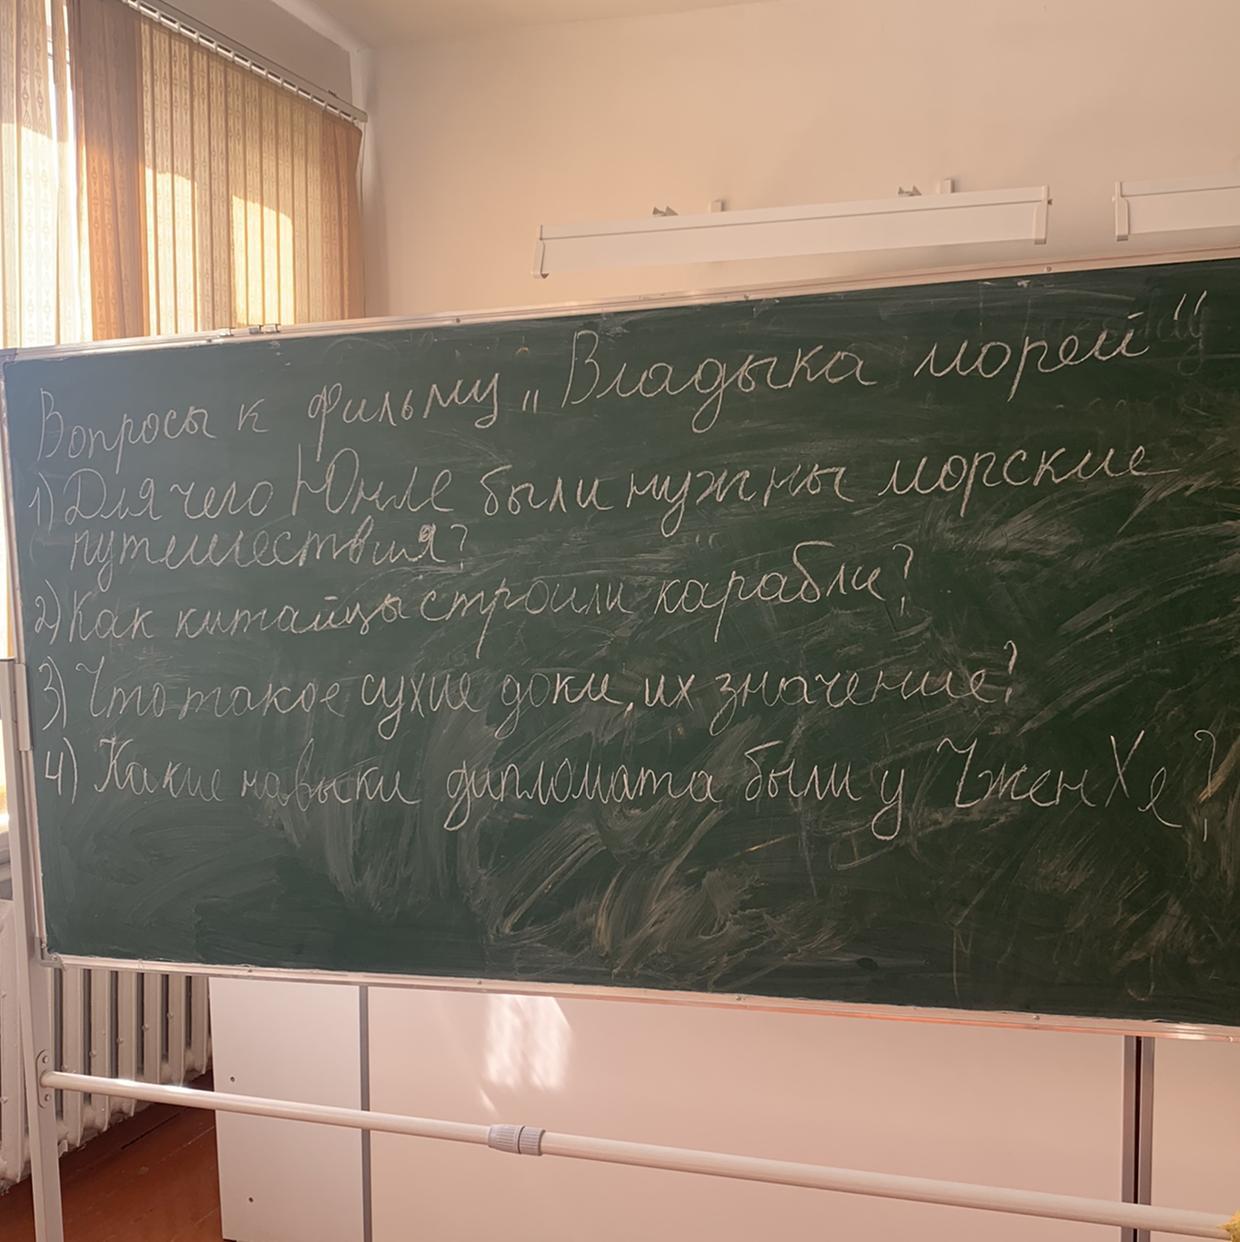 Вопросы к фильму „Владыка морей“
1) Для чего Юнле были нужны морские
путешествия?
2) Как китайцы строили карабли?
3) Что такое сухие доки, их значение?
4) Какие навыки дипломата были у Чжен Хе?